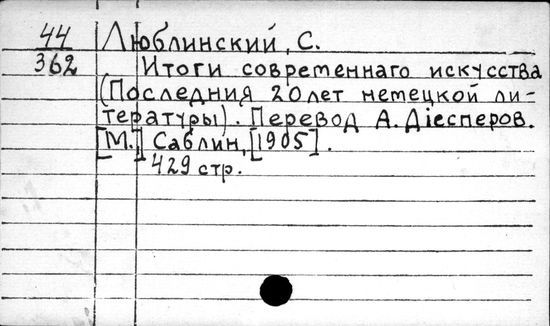 44 Люблинский, С.
362 Итоги современнаго искусства
(Последния 20 лет немецкой ли-
тературы). Перевод А. Діесперов.
[М.] Саблин, [1905].
429 стр.